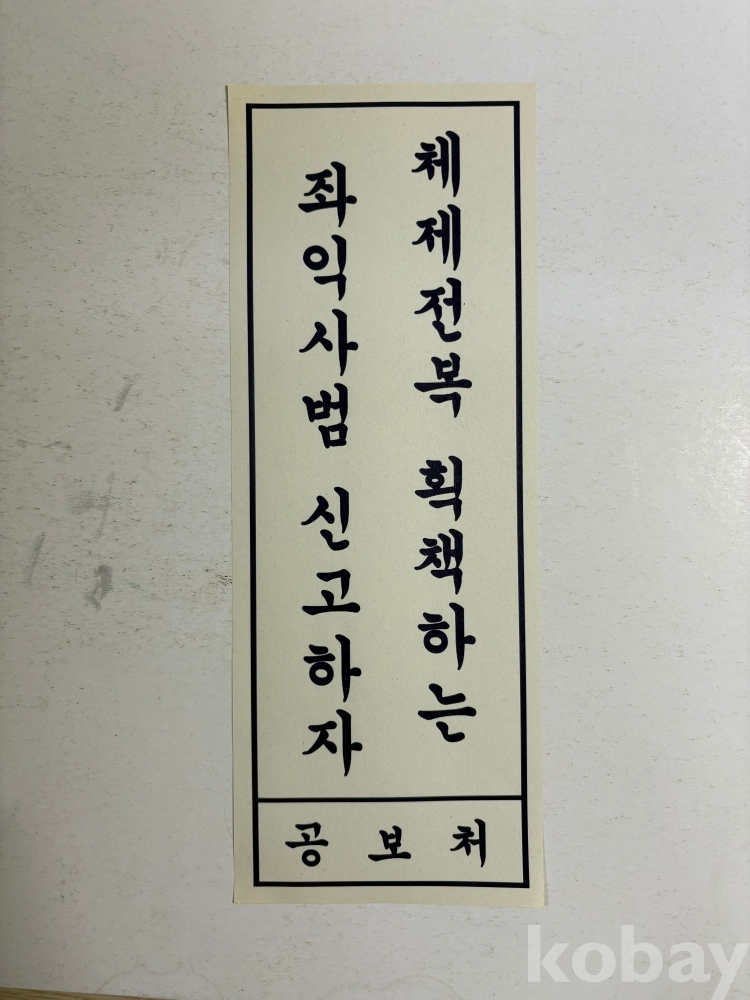 체제전복 획책하는
좌익사범 신고하자
공보처
kobay